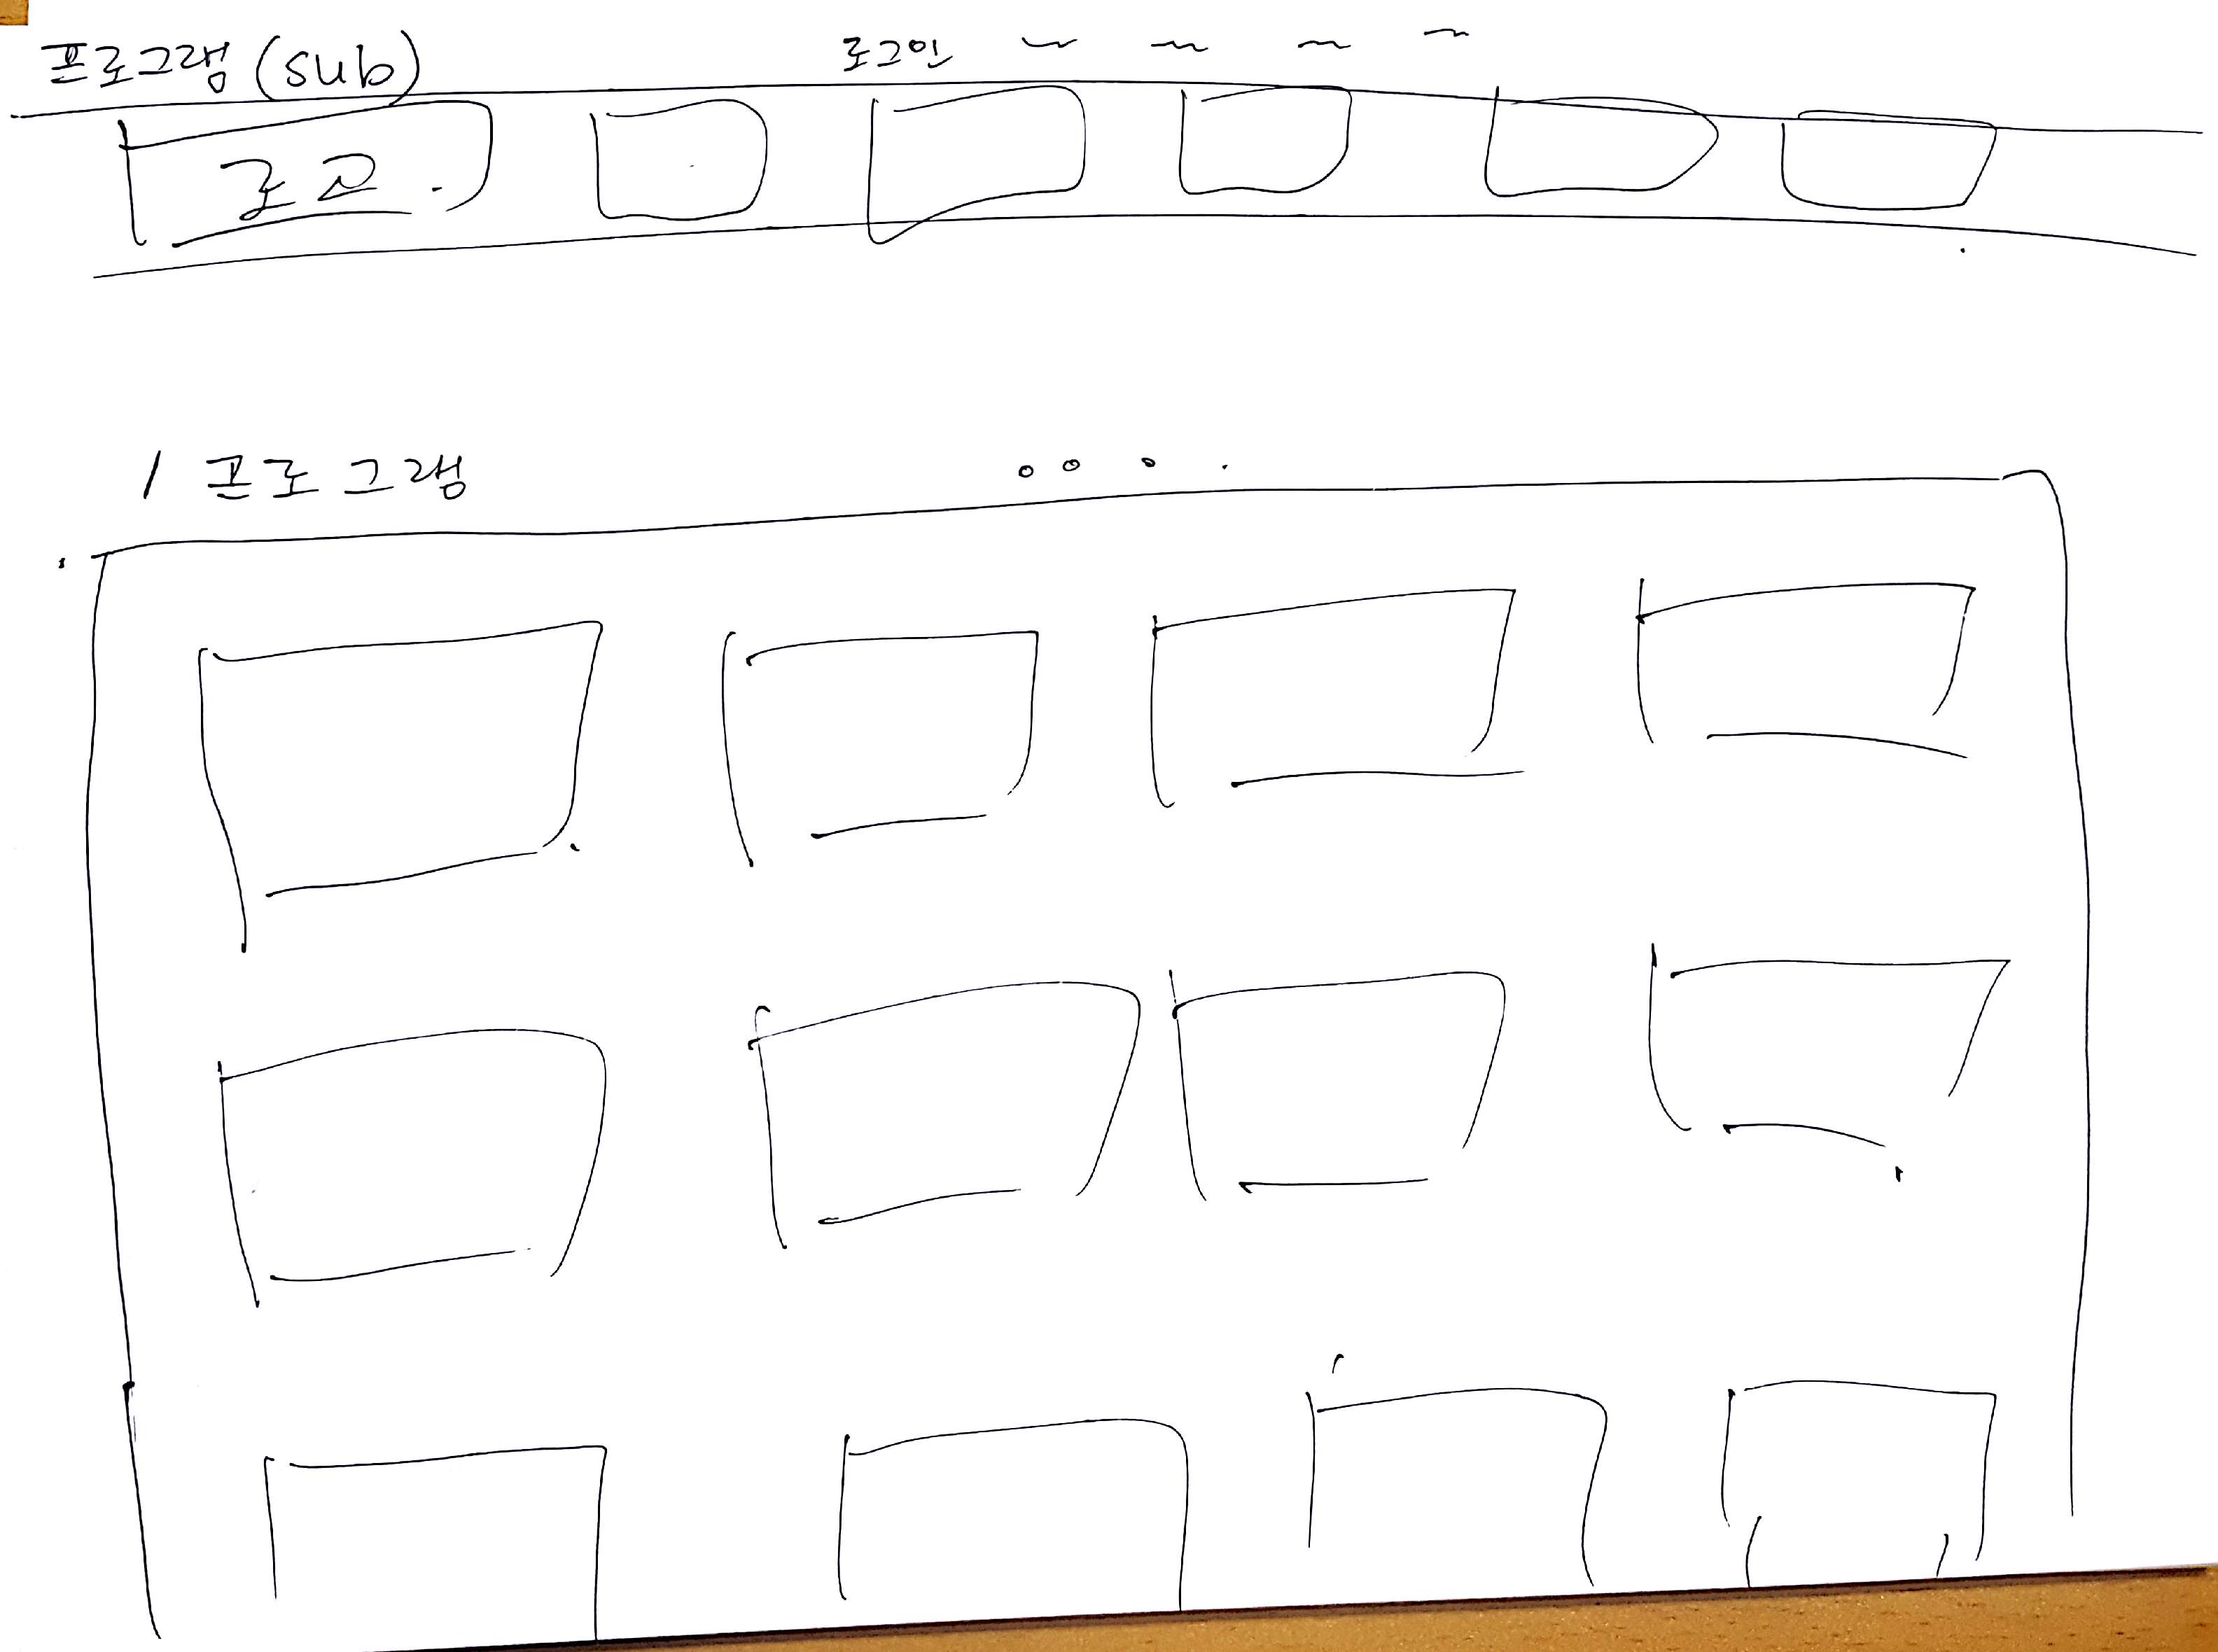 프로그램 (sub)
로그인
로고
/ 프로그램